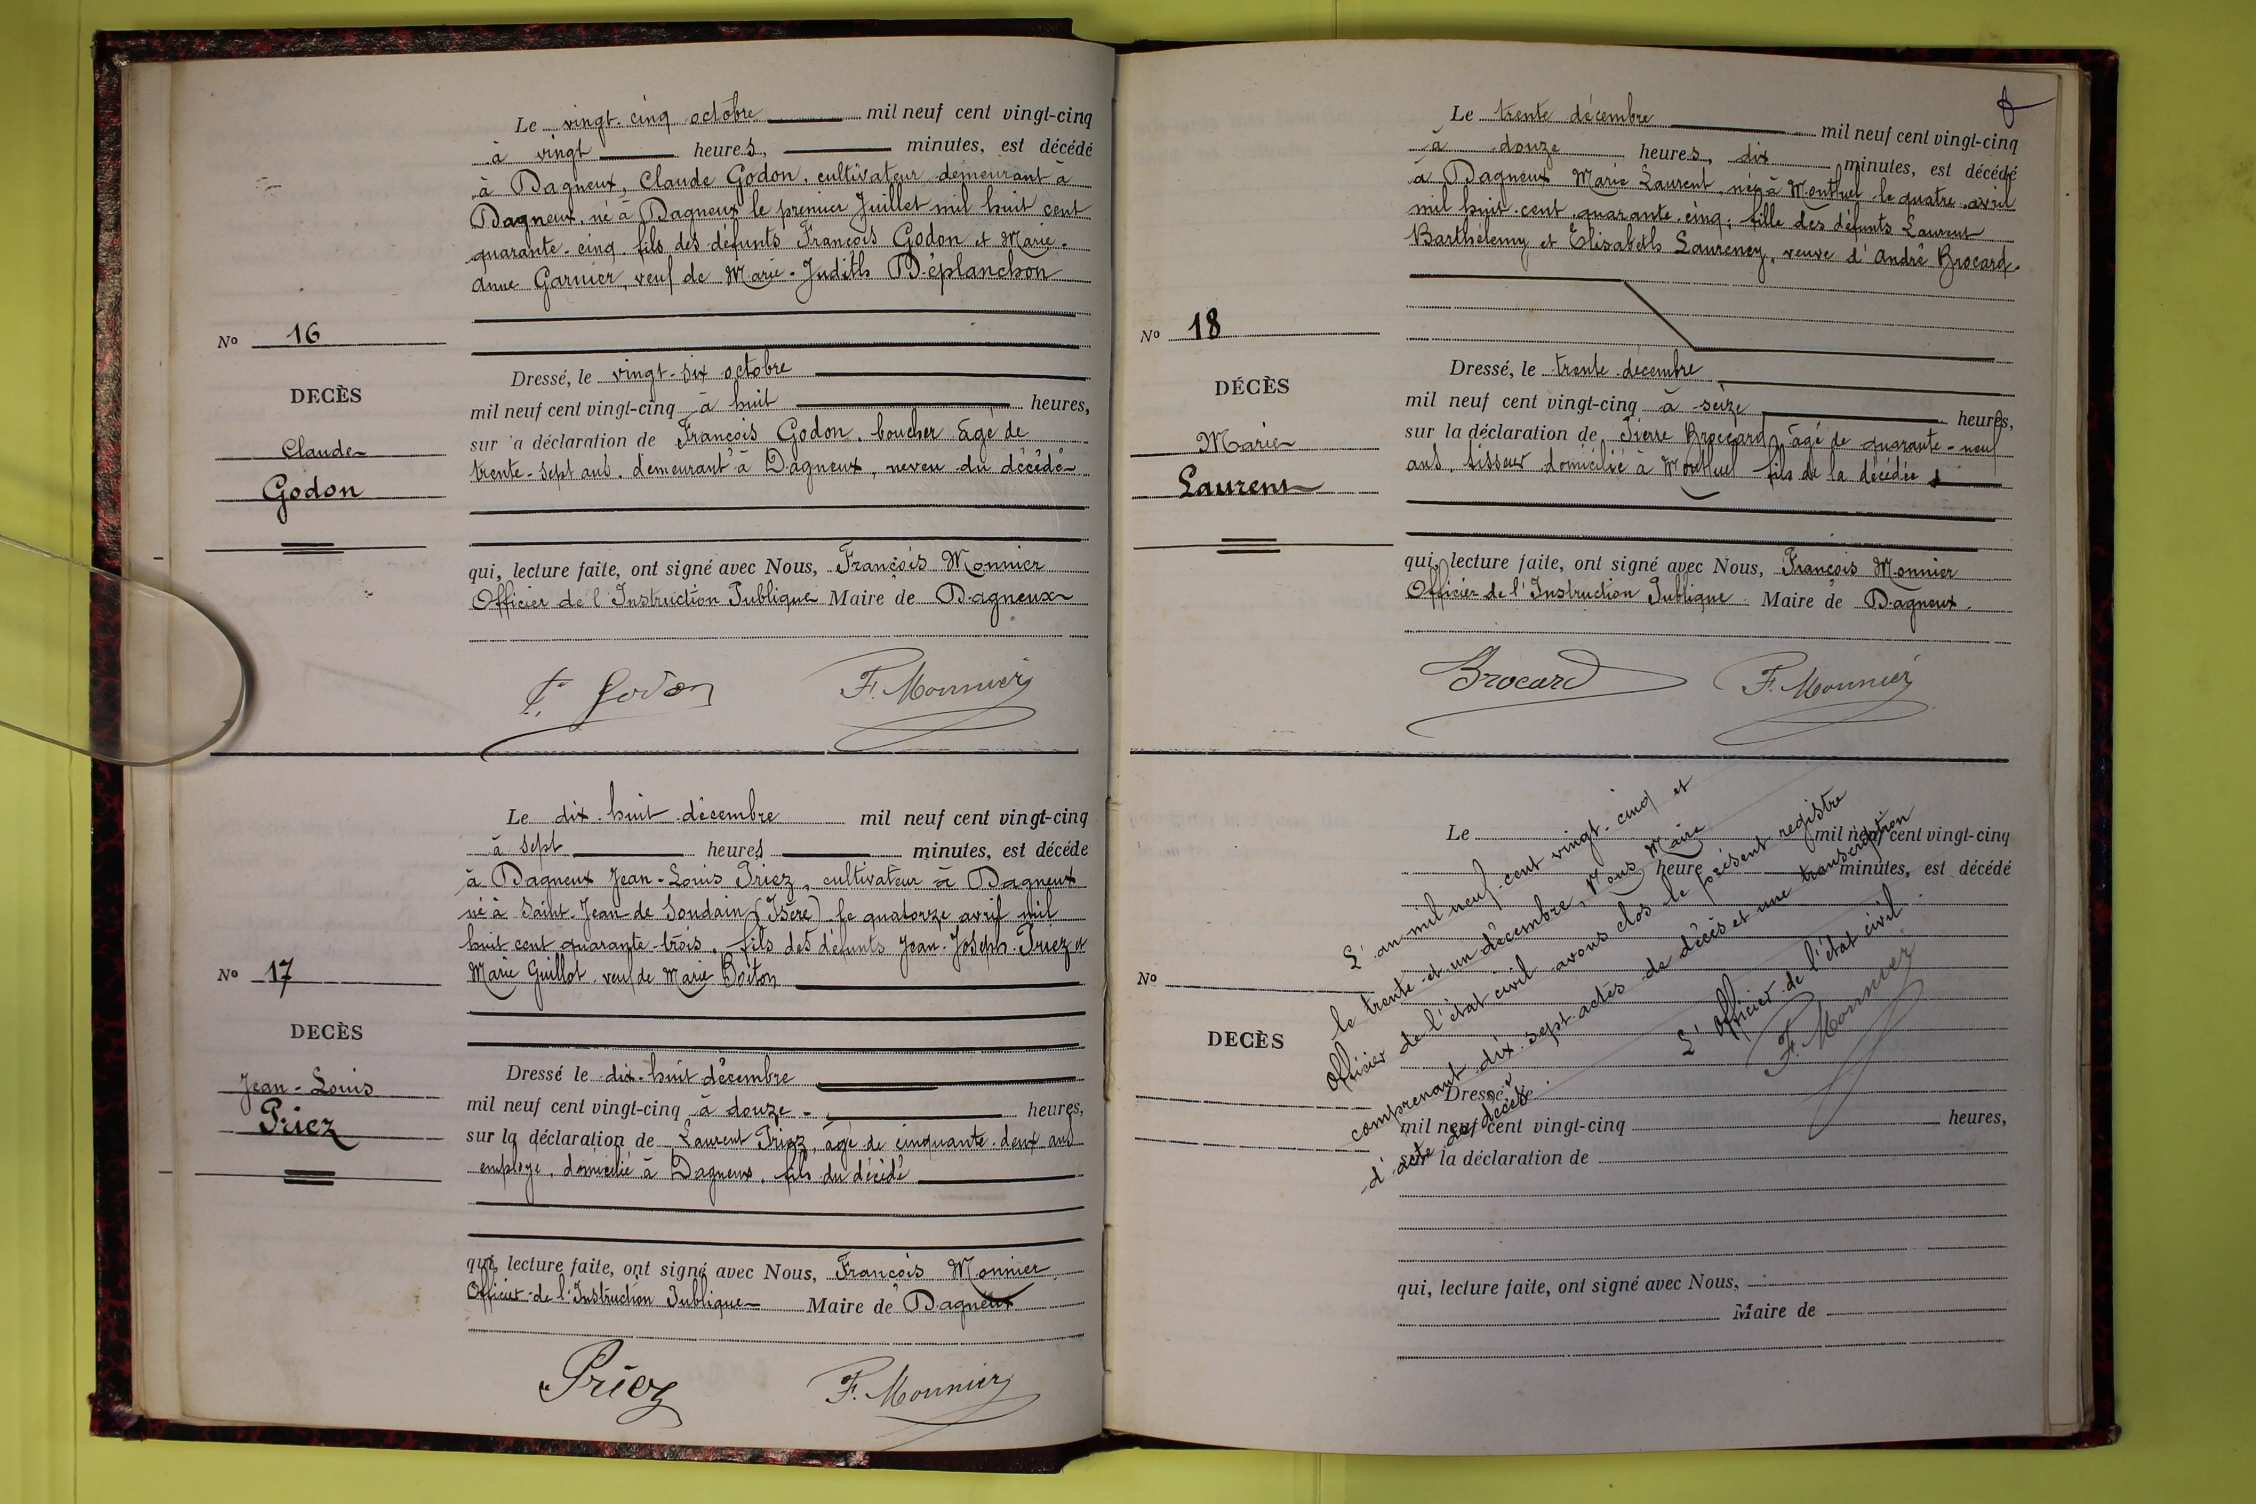 Le vingt-cinq octobre mil neuf cent vingt-cinq
à vingt heures, minutes, est décédé
à Dagneux, Claude Godon, cultivateur demeurant à
Dagneux, né à Dagneux le premier Juillet mil huit cent
quarante-cinq, fils des défunts François Godon et Marie-
Anne Garnier, veuf de Marie-Judith Déplanchon
No 16
DECÈS
Claude
Godon
Dressé, le vingt-six octobre
mil neuf cent vingt-cinq à huit heures,
sur a déclaration de François Godon, boucher âgé de
trente-sept ans, demeurant à Dagneux, neveu du décédé
qui, lecture faite, ont signé avec Nous, François Monnier
Officier de l'Instruction Publique Maire de Dagneux
F. Godon F. Monnier
Le dix-huit décembre mil neuf cent vingt-cinq
à sept heures minutes, est décédé
à Dagneux Jean-Louis Priez, cultivateur à Dagneux
né à Saint-Jean de Soudain (Isère) le quatorze avril mil
huit cent quarante-trois, fils des défunts Jean-Joseph Priez et
Marie Guillot veuf de Marie Boiton
No 17
DECÈS
Jean-Louis
Priez
Dressé le dix-huit décembre
mil neuf cent vingt-cinq à douze heures,
sur la déclaration de Laurent Priez, âgé de cinquante-deux ans
employé, domicilié à Dagneux, fils du décédé
qui, lecture faite, ont signé avec Nous, François Monnier
Officier de l'Instruction Publique Maire de Dagneux
Priez F. Monnier
Le trente décembre mil neuf cent vingt-cinq
à douze heures, dix minutes, est décédé
à Dagneux Marie Laurent, née à Montluel le quatre avril
mil huit-cent quarante-cinq, fille des défunts Laurent
Barthélemy et Elisabeth Laurency, veuve d'André Brocard.
No 18
DÉCÈS
Marie
Laurent
Dressé, le trente décembre
mil neuf cent vingt-cinq à seize heures,
sur la déclaration de Pierre Broccard, âgé de quarante-neuf
ans, tisseur domicilié à Montluel fils de la décédée
qui, lecture faite, ont signé avec Nous, François Monnier
Officier de l'Instruction Publique Maire de Dagneux.
Brocard F. Monnier
Le mil neuf cent vingt-cinq
heure minutes, est décédé
No
DECÈS
Dressé, le
mil neuf cent vingt-cinq heures,
sur la déclaration de
qui, lecture faite, ont signé avec Nous,
Maire de
L'an mil neuf-cent vingt-cinq et
le trente-et-un décembre, Nous Maire
Officier de l'état civil avons clos le présent registre
comprenant dix-sept actes de décès et une transcription
d'acte de décès.
L'Officier de l'état civil.
F. Monnier